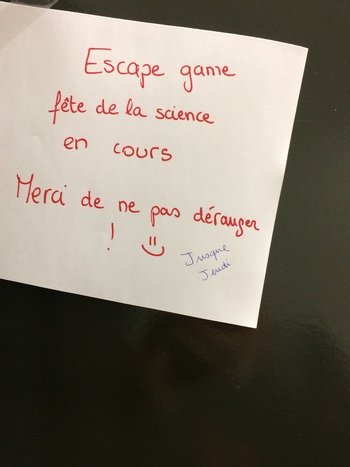 Escape game
fête de la science
en cours
Merci de ne pas déranger
! =)
Jusque
Jeudi